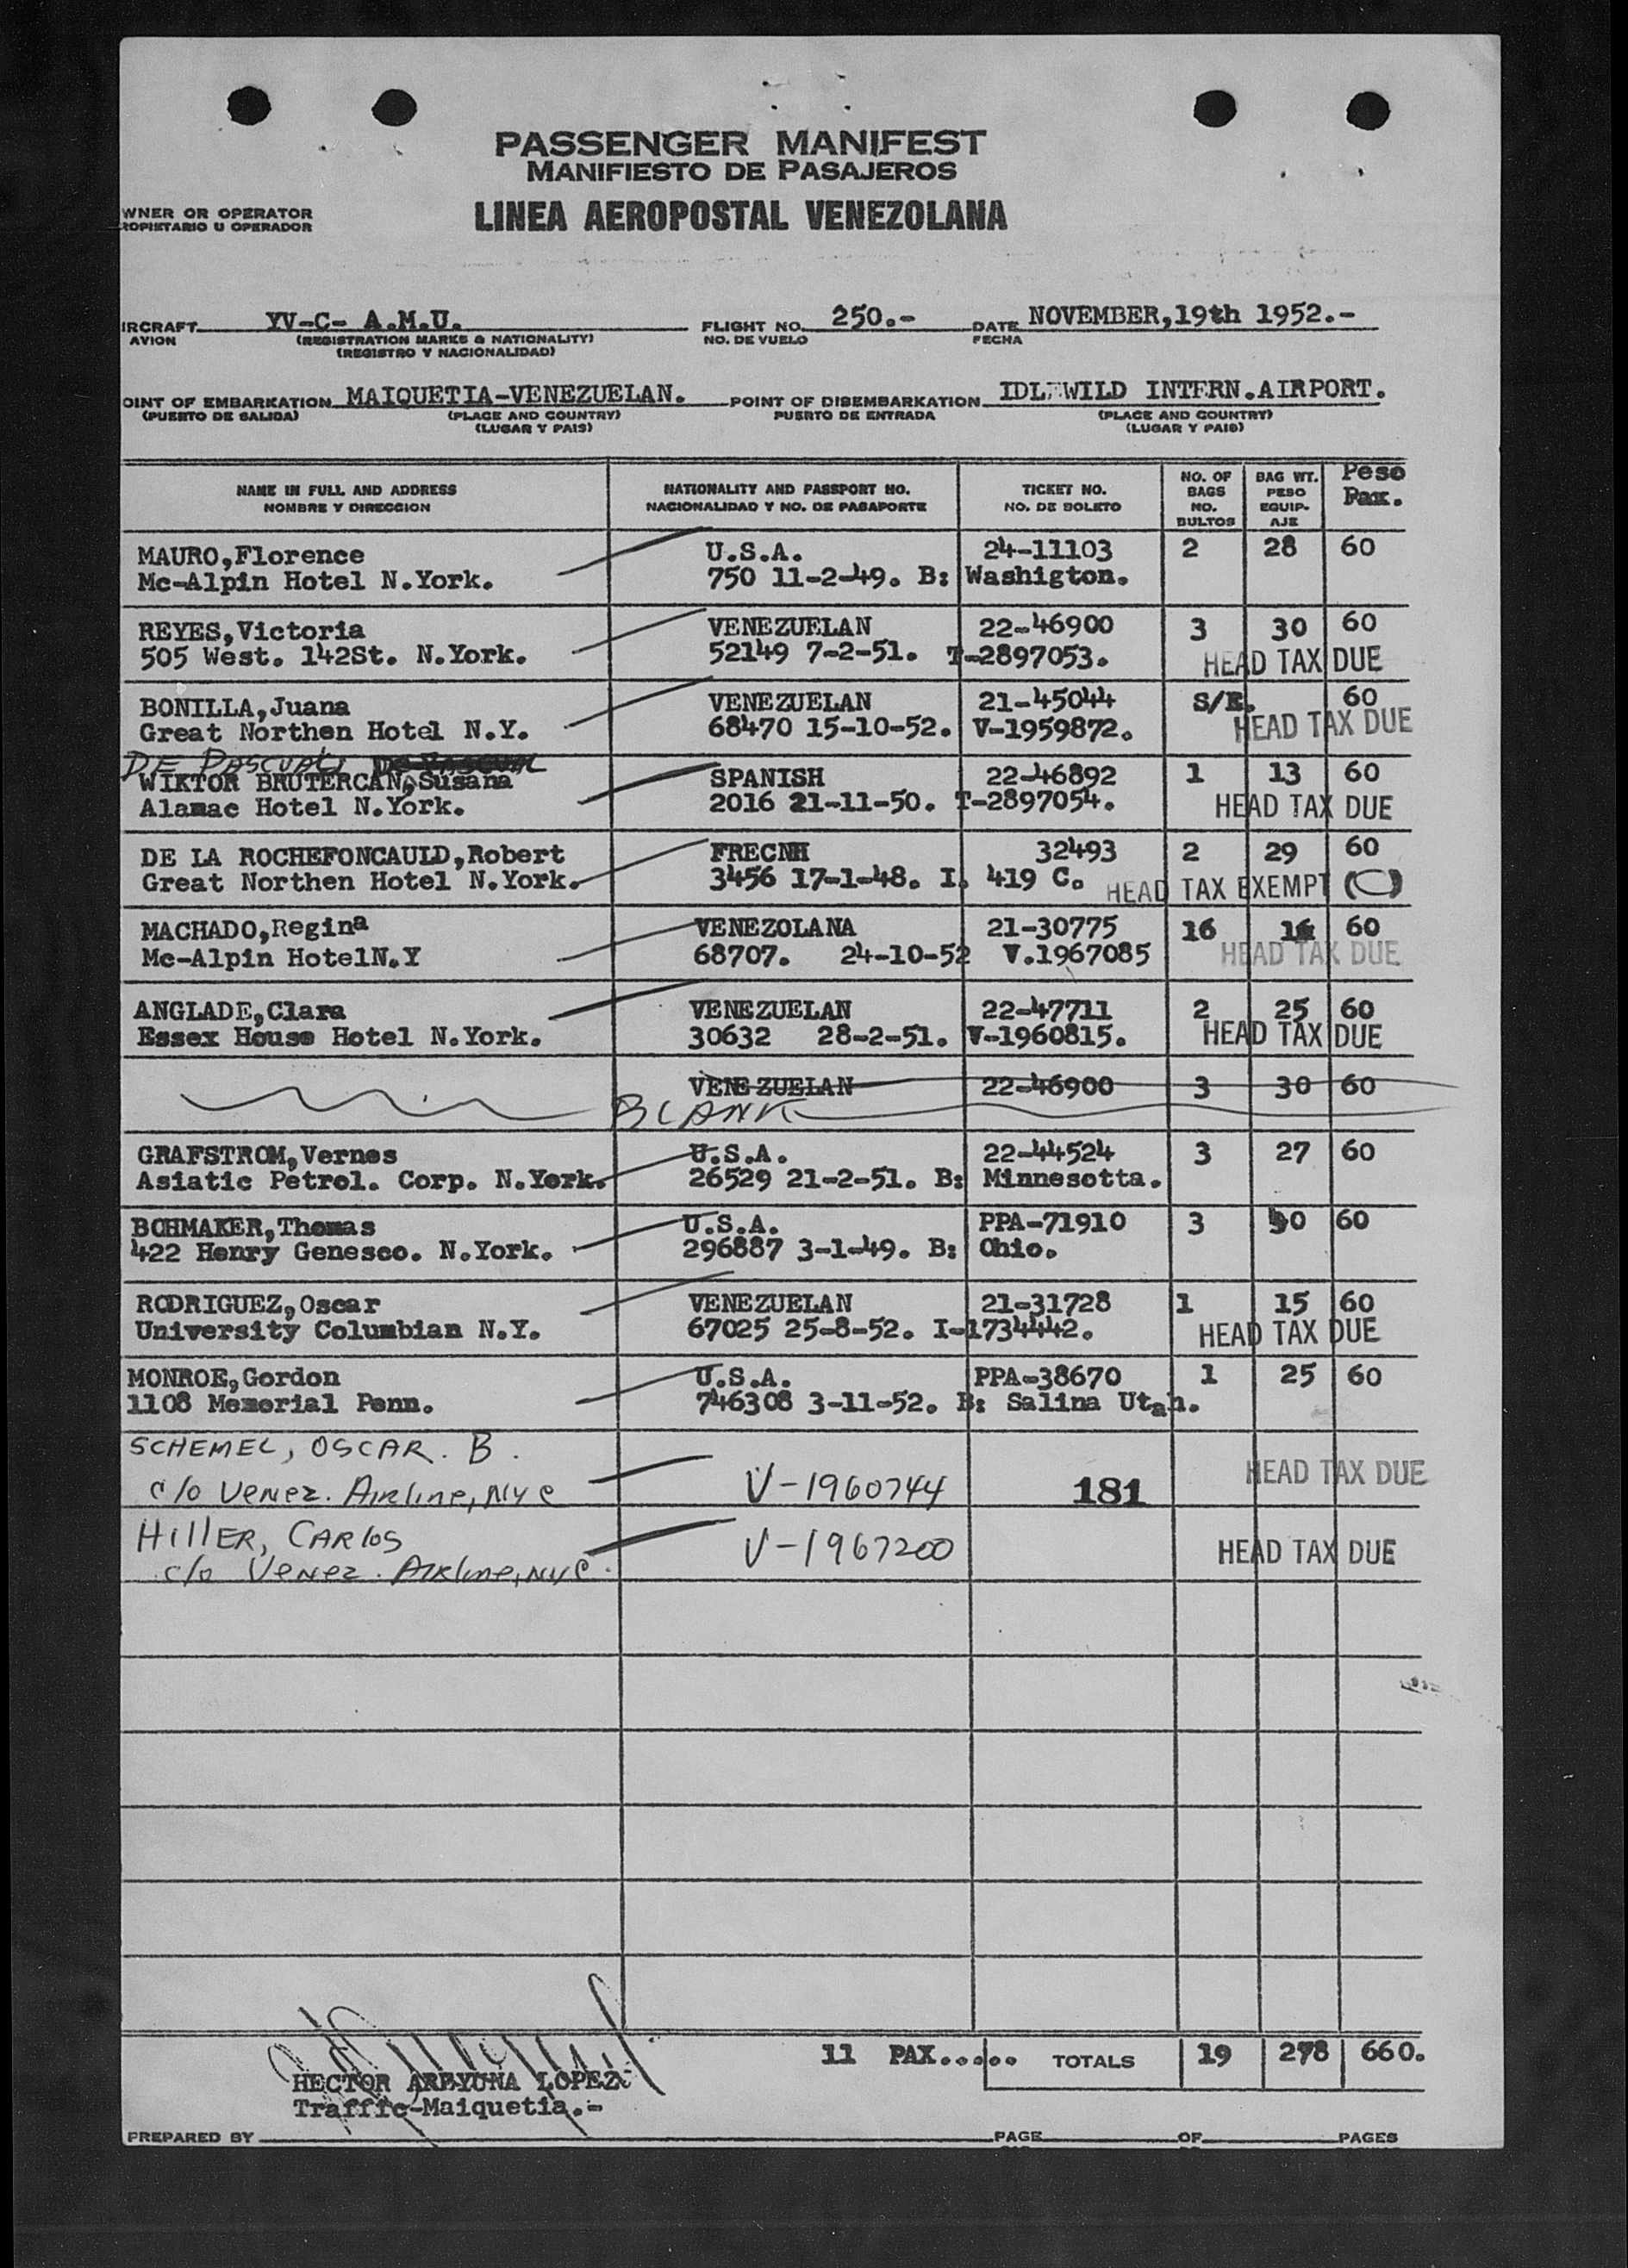 PASSENGER MANIFEST
MANIFIESTO DE PASAJEROS
WNER OR OPERATOR
ROPIETARIO U OPERADOR
LINEA AEROPOSTAL VENEZOLANA
IRCRAFT YV-C- A.M.U. FLIGHT NO. 250.- DATE NOVEMBER,19th 1952.-
AVION (REGISTRATION MARKS & NATIONALITY) NO. DE VUELO FECHA
(REGISTRO Y NACIONALIDAD)
OINT OF EMBARKATION MAIQUETIA-VENEZUELAN. POINT OF DISEMBARKATION IDLEWILD INTERN.AIRPORT.
(PUERTO DE SALIDA) (PLACE AND COUNTRY) PUERTO DE ENTRADA (PLACE AND COUNTRY)
(LUGAR Y PAIS) (LUGAR Y PAIS)
NAME IN FULL AND ADDRESS NATIONALITY AND PASSPORT NO. TICKET NO. NO. OF BAGS BAG WT. Peso
NOMBRE Y DIRECCION NACIONALIDAD Y NO. DE PASAPORTE NO. DE BOLETO NO. BULTOS PESO EQUIP-AJE Pax.
MAURO,Florence U.S.A. 24-11103 2 28 60
Mc-Alpin Hotel N.York. 750 11-2-49. B: Washigton.
REYES,Victoria VENEZUELAN 22-46900 3 30 60
505 West. 142St. N.York. 52149 7-2-51. T-2897053. HEAD TAX DUE
BONILLA,Juana VENEZUELAN 21-45044 S/E. 60
Great Northen Hotel N.Y. 68470 15-10-52. V-1959872. HEAD TAX DUE
DE PASCUAL DE PASCUAL
WIKTOR BRUTERCAN,Susana SPANISH 22-46892 1 13 60
Alamac Hotel N.York. 2016 21-11-50. T-2897054. HEAD TAX DUE
DE LA ROCHEFONCAULD,Robert FRECNH 32493 2 29 60
Great Northen Hotel N.York. 3456 17-1-48. I. 419 C. HEAD TAX EXEMPT (C)
MACHADO,Regina VENEZOLANA 21-30775 16 16 60
Mc-Alpin HotelN.Y 68707. 24-10-52 V.1967085 HEAD TAX DUE
ANGLADE,Clara VENEZUELAN 22-47711 2 25 60
Essex House Hotel N.York. 30632 28-2-51. V-1960815. HEAD TAX DUE
VENEZUELAN 22-46900 3 30 60
BLANK
GRAFSTROM,Vernes U.S.A. 22-44524 3 27 60
Asiatic Petrol. Corp. N.York. 26529 21-2-51. B: Minnesotta.
BOHMAKER,Thomas U.S.A. PPA-71910 3 60
422 Henry Genesco. N.York. 296887 3-1-49. B: Ohio.
RODRIGUEZ,Oscar VENEZUELAN 21-31728 1 15 60
University Columbian N.Y. 67025 25-8-52. I-1734442. HEAD TAX DUE
MONROE,Gordon U.S.A. PPA-38670 1 25 60
1108 Memorial Penn. 746308 3-11-52. B: Salina Utah.
SCHEMEL, OSCAR. B.
c/o Venez. Airline, NYC V-1960744 181 HEAD TAX DUE
HILLER, CARLOS
c/o Venez. Airline, NYC. V-1967200 HEAD TAX DUE
11 PAX..... TOTALS 19 278 660.
HECTOR AREYUNA LOPEZ
Traffic-Maiquetia.-
PREPARED BY PAGE OF PAGES